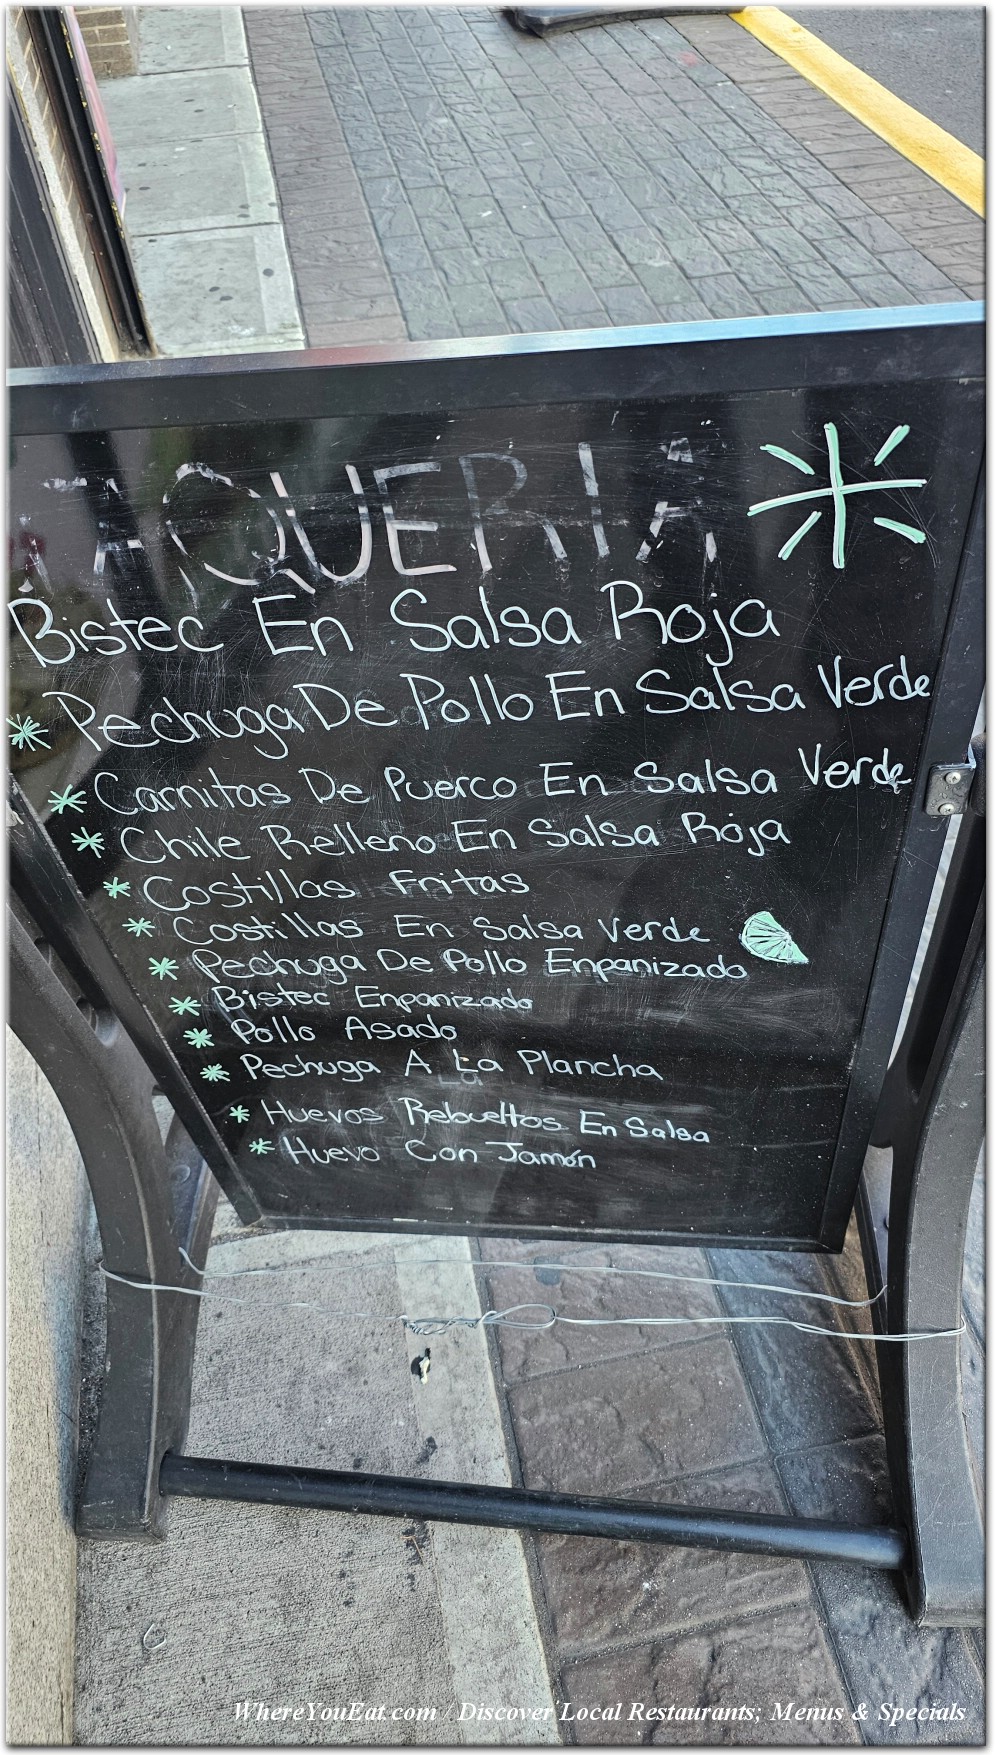 TAQUERIA
Bistec En Salsa Roja
Pechuga De Pollo En Salsa Verde
Carnitas De Puerco En Salsa Verde
Chile Relleno En Salsa Roja
Costillas Fritas
Costillas En Salsa Verde
Pechuga De Pollo Enpanizado
Bistec Enpanizado
Pollo Asado
Pechuga A La Plancha
Huevos Rebueltos En Salsa
Huevo Con Jamón
WhereYouEat.com / Discover Local Restaurants; Menus & Specials